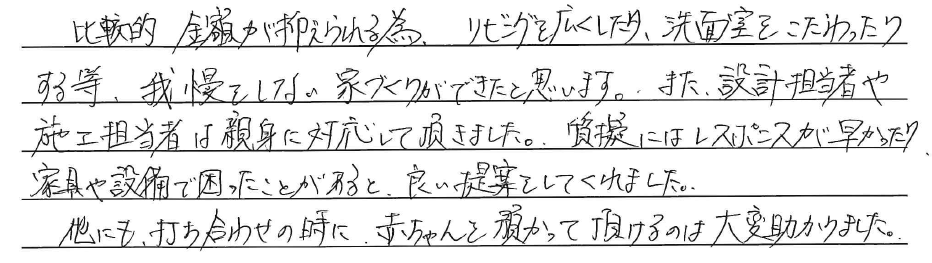 比較的 金額が抑えられる為、リビングを広くしたり、洗面室をこだわったり
する等、我慢をしない家づくりができたと思います。また、設計担当者や
施工担当者は親身に対応して頂きました。質疑にはレスポンスが早かったり、
家具や設備で困ったことがあると、良い提案をしてくれました。
他にも、打ち合わせの時に、赤ちゃんを預かって頂けるのは大変助かりました。